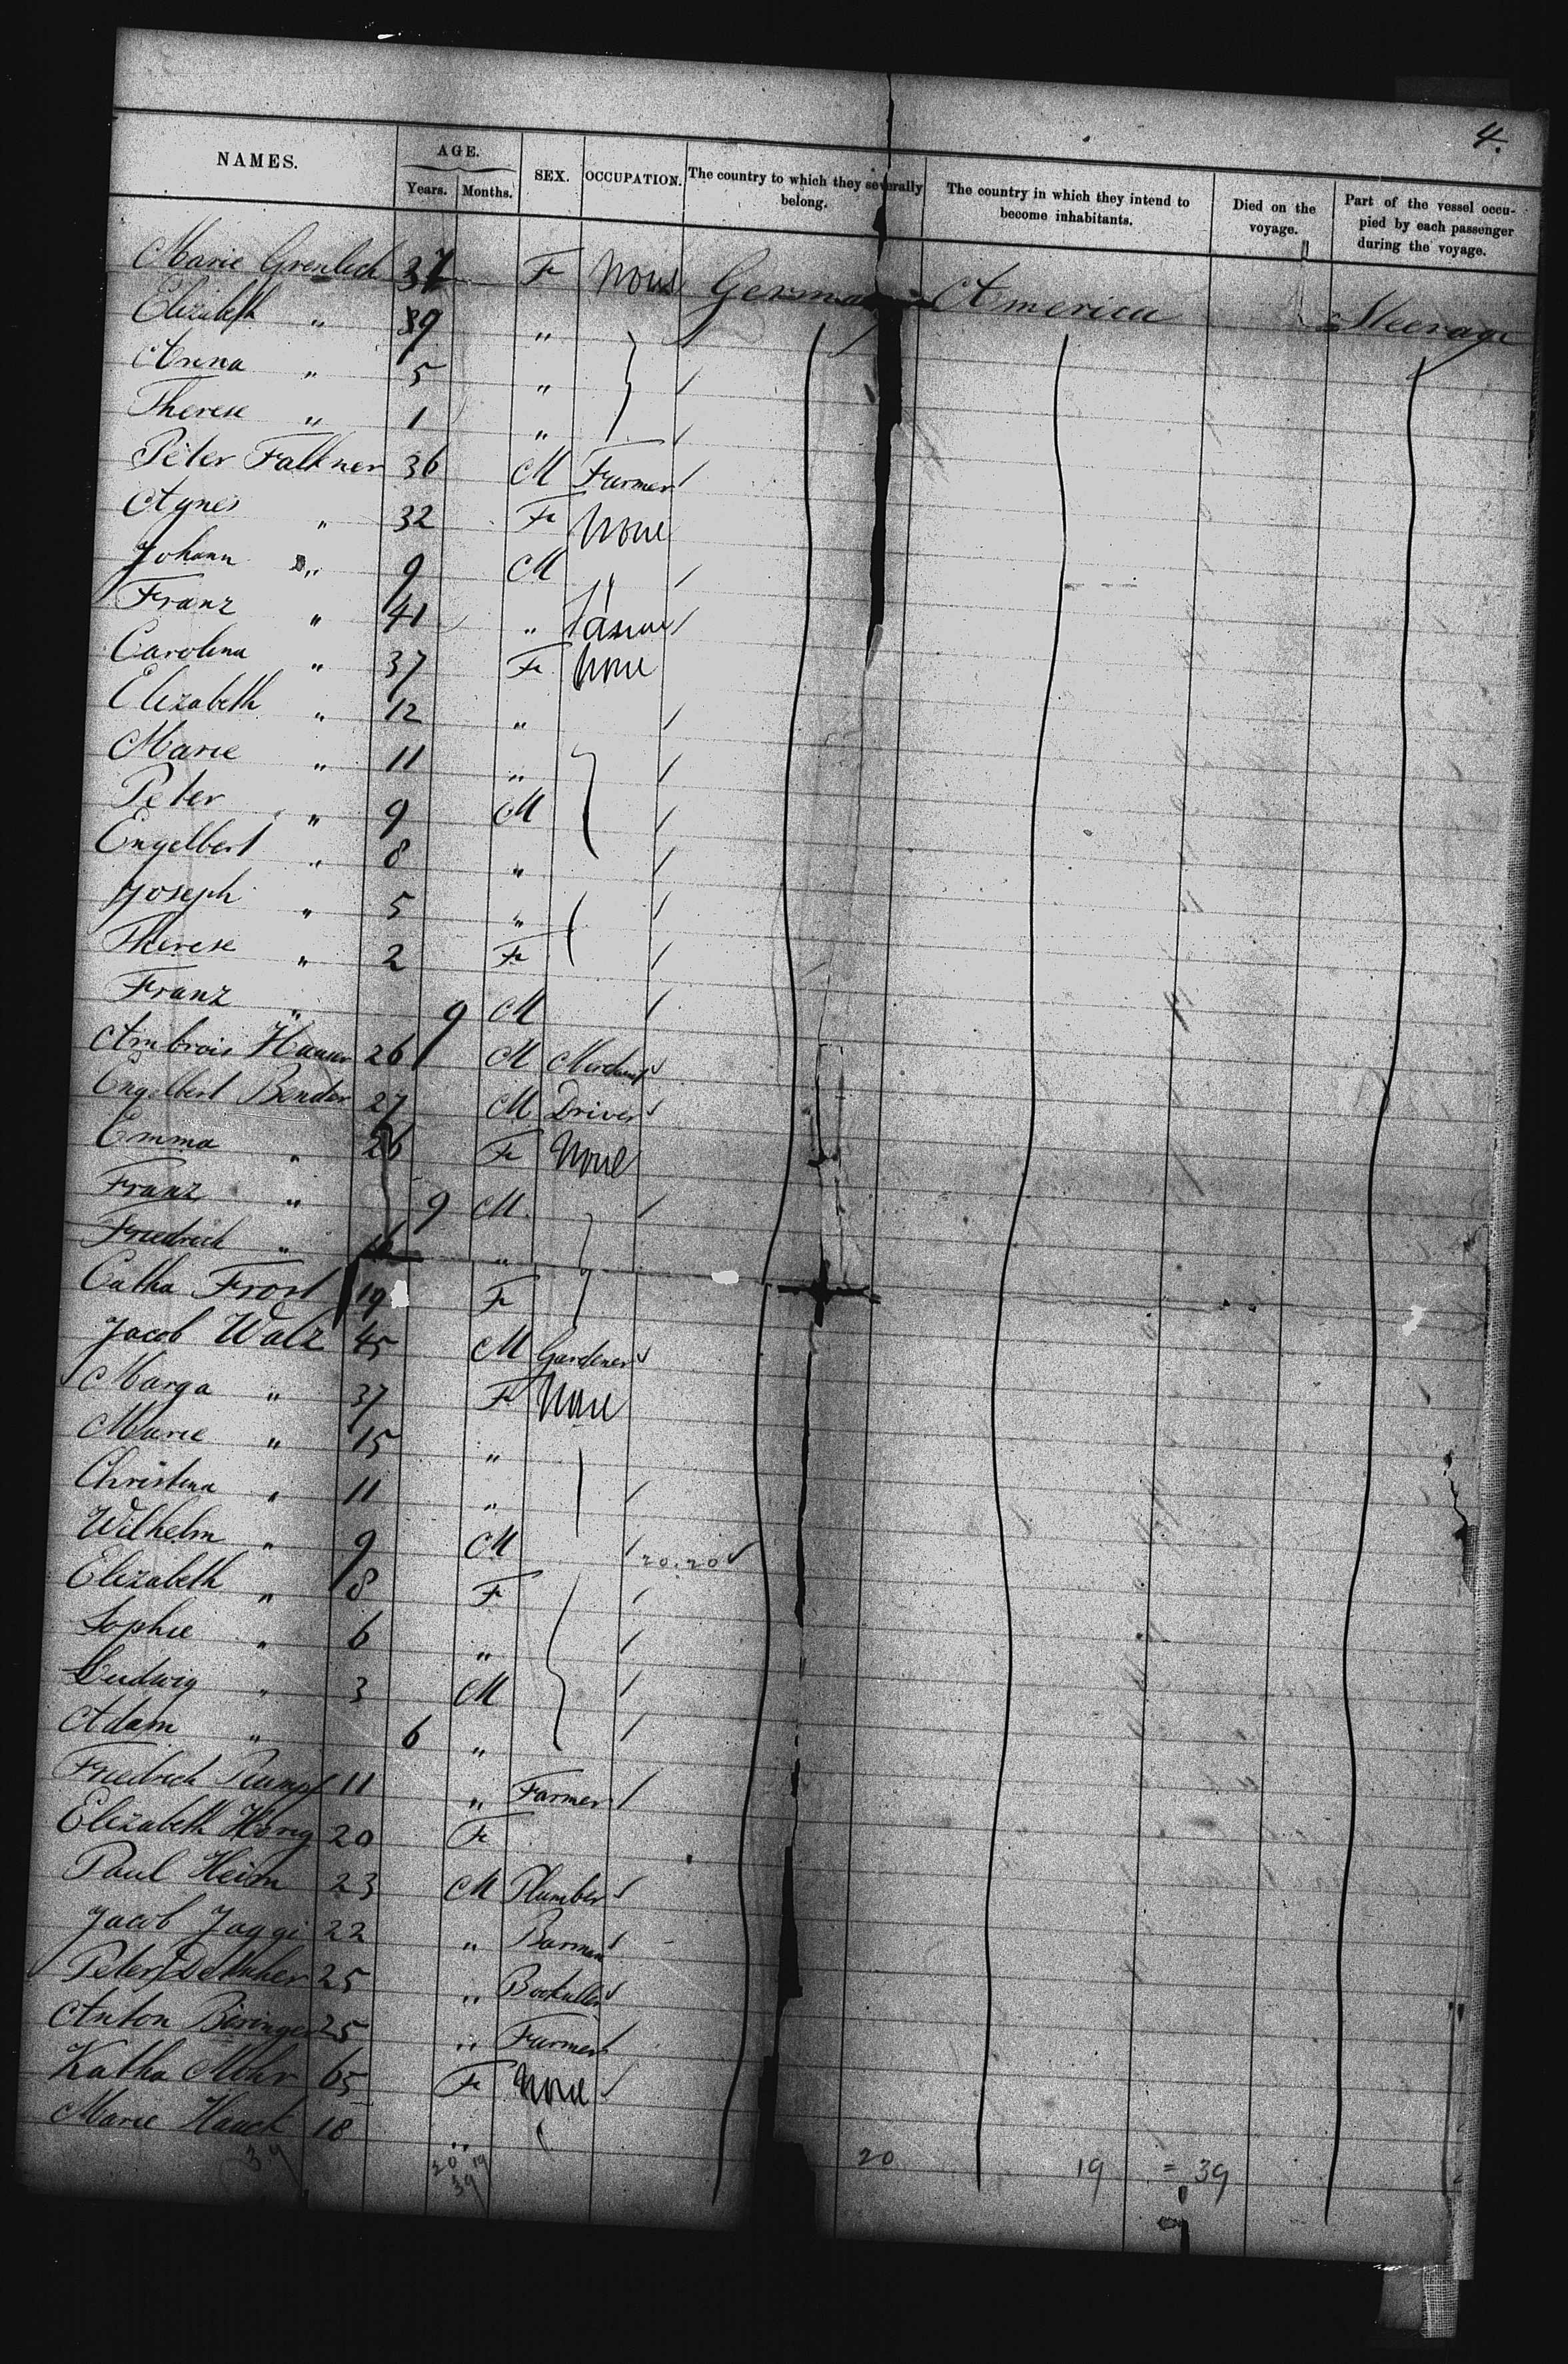 4.
NAMES. AGE. SEX. OCCUPATION. The country to which they severally belong. The country in which they intend to become inhabitants. Died on the voyage. Part of the vessel occupied by each passenger during the voyage.
Years. Months.
Marie 37 F None Germa America Steerage
Elizabeth " 39 "
Anna " 5 "
Therese " 1 "
Peter Falkner 36 M Farmer
Agnes " 32 F None
Johann " 9 M "
Franz " 41 "
Carolina " 37 F None
Elizabeth " 12 "
Marie " 11 "
Peter " 9 M
Engelbert " 8 "
Joseph " 5 "
Therese " 2 F
Franz " 9 M
Ambrois 26 M Merchant
Engelbert Bender 27 M Driver
Emma " 26 F None
Franz " 9 M
Friedrich " "
Catha Frost 19 F
Jacob Walz 45 M Gardener
Marga " 37 F None
Marie " 15 "
Christina " 11 "
Wilhelm " 9 M 20.20
Elizabeth " 8 F
Sophie " 6 "
Ludwig " 3 M
Adam " 6 "
Friedrich Rumpf 11 " Farmer
Elizabeth Honig 20 F
Paul Heim 23 M Plumber
Jacob Jaggi 22 " Barman
Peter 25 "
Anton Beringer 25 " Farmer
Katha Mohr 65 F None
Marie Haack 18 "
39 20 19 20 19 = 39
39